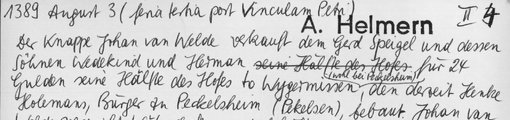 1389 August 3 (feria tertia post Vinculam Petri)
A. Helmern
II 4
Der Knappe Johan van Welde verkauft dem Gerd Speigel und dessen
Söhnen Wedekind und Herman seine Hälfte des Hofes für 24
(wohl bei Peckelsheim)
Gulden seine Hälfte des Hofes to Wygermissen, den derzeit Henke
Holemans, Bürger zu Peckelsheim (Pekelsen), bebaut. Johan van